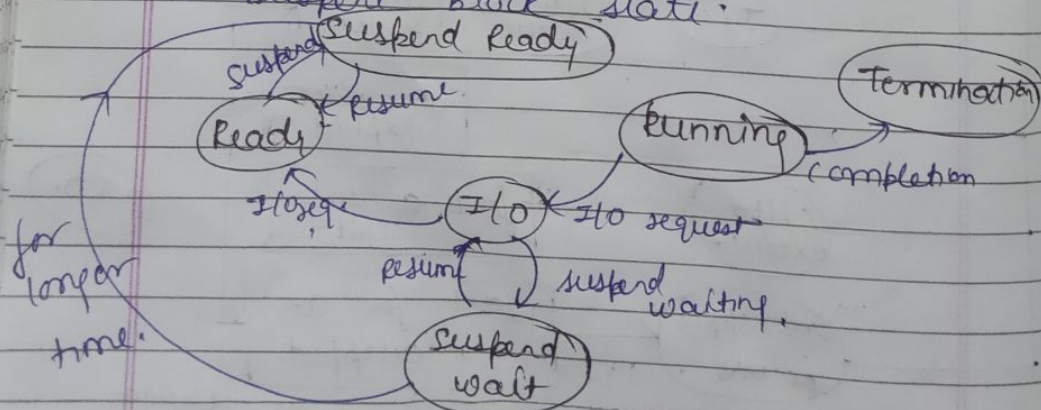 state.
Suspend Ready
Suspend
Resume
Termination
Ready
Running
completion
I/O req
I/O
I/O request
for
longer
time.
resume
suspend
waiting.
Suspend
wait